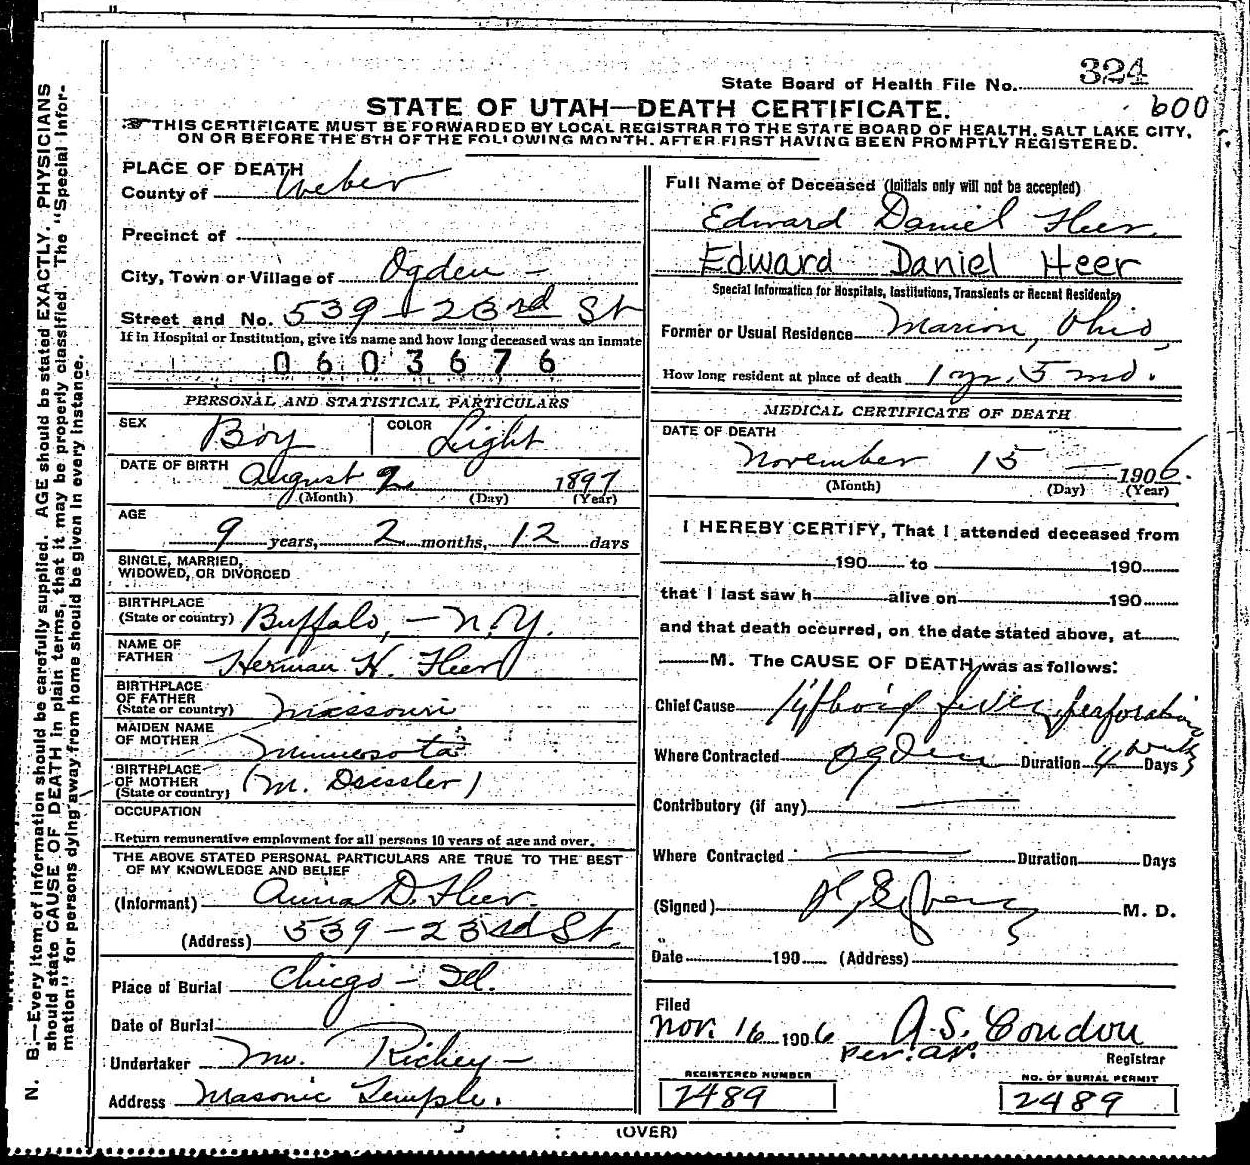 State Board of Health File No. 324
600
STATE OF UTAH—DEATH CERTIFICATE.
THIS CERTIFICATE MUST BE FORWARDED BY LOCAL REGISTRAR TO THE STATE BOARD OF HEALTH, SALT LAKE CITY,
ON OR BEFORE THE 5TH OF THE FOLLOWING MONTH. AFTER FIRST HAVING BEEN PROMPTLY REGISTERED.
N. B.—Every item of information should be carefully supplied. AGE should be stated EXACTLY. PHYSICIANS
should state CAUSE OF DEATH in plain terms, that it may be properly classified. The "Special Infor-
mation" for persons dying away from home should be given in every instance.
PLACE OF DEATH
County of Weber
Precinct of
City, Town or Village of Ogden —
Street and No. 539 - 23rd St
If in Hospital or Institution, give its name and how long deceased was an inmate
0603676
PERSONAL AND STATISTICAL PARTICULARS
SEX Boy COLOR Light
DATE OF BIRTH August 2 1897
(Month) (Day) (Year)
AGE
9 years, 2 months, 12 days
SINGLE, MARRIED,
WIDOWED, OR DIVORCED
BIRTHPLACE
(State or country) Buffalo, — N.Y.
NAME OF
FATHER Herman H. Heer
BIRTHPLACE
OF FATHER
(State or country) Missouri
MAIDEN NAME
OF MOTHER Minnesota
BIRTHPLACE
OF MOTHER
(State or country) (M. Dressler)
OCCUPATION
Return remunerative employment for all persons 10 years of age and over.
THE ABOVE STATED PERSONAL PARTICULARS ARE TRUE TO THE BEST
OF MY KNOWLEDGE AND BELIEF
(Informant) Anna D. Heer.
(Address) 539 - 23rd St.
Place of Burial Chicgo - Ill.
Date of Burial
Undertaker Mr. Richey —
Address Masonic Temple.
Full Name of Deceased (Initials only will not be accepted)
Edward Daniel Heer.
Edward Daniel Heer
Special Information for Hospitals, Institutions, Transients or Recent Residents
Former or Usual Residence Marion, Ohio,
How long resident at place of death 1 yr. 5 mo.
MEDICAL CERTIFICATE OF DEATH
DATE OF DEATH
November 15 — 1906.
(Month) (Day) (Year)
I HEREBY CERTIFY, That I attended deceased from
190 to 190
that I last saw h alive on 190
and that death occurred, on the date stated above, at
M. The CAUSE OF DEATH was as follows:
Chief Cause Typhoid fever, perforation
Where Contracted Ogden Duration 4 weeks Days
Contributory (if any) —
Where Contracted — Duration Days
(Signed) M. D.
Date 190 (Address)
Filed
Nov. 16 1906 A. S. Condon
per. ar. Registrar
REGISTERED NUMBER
2489
NO. OF BURIAL PERMIT
2489
(OVER)